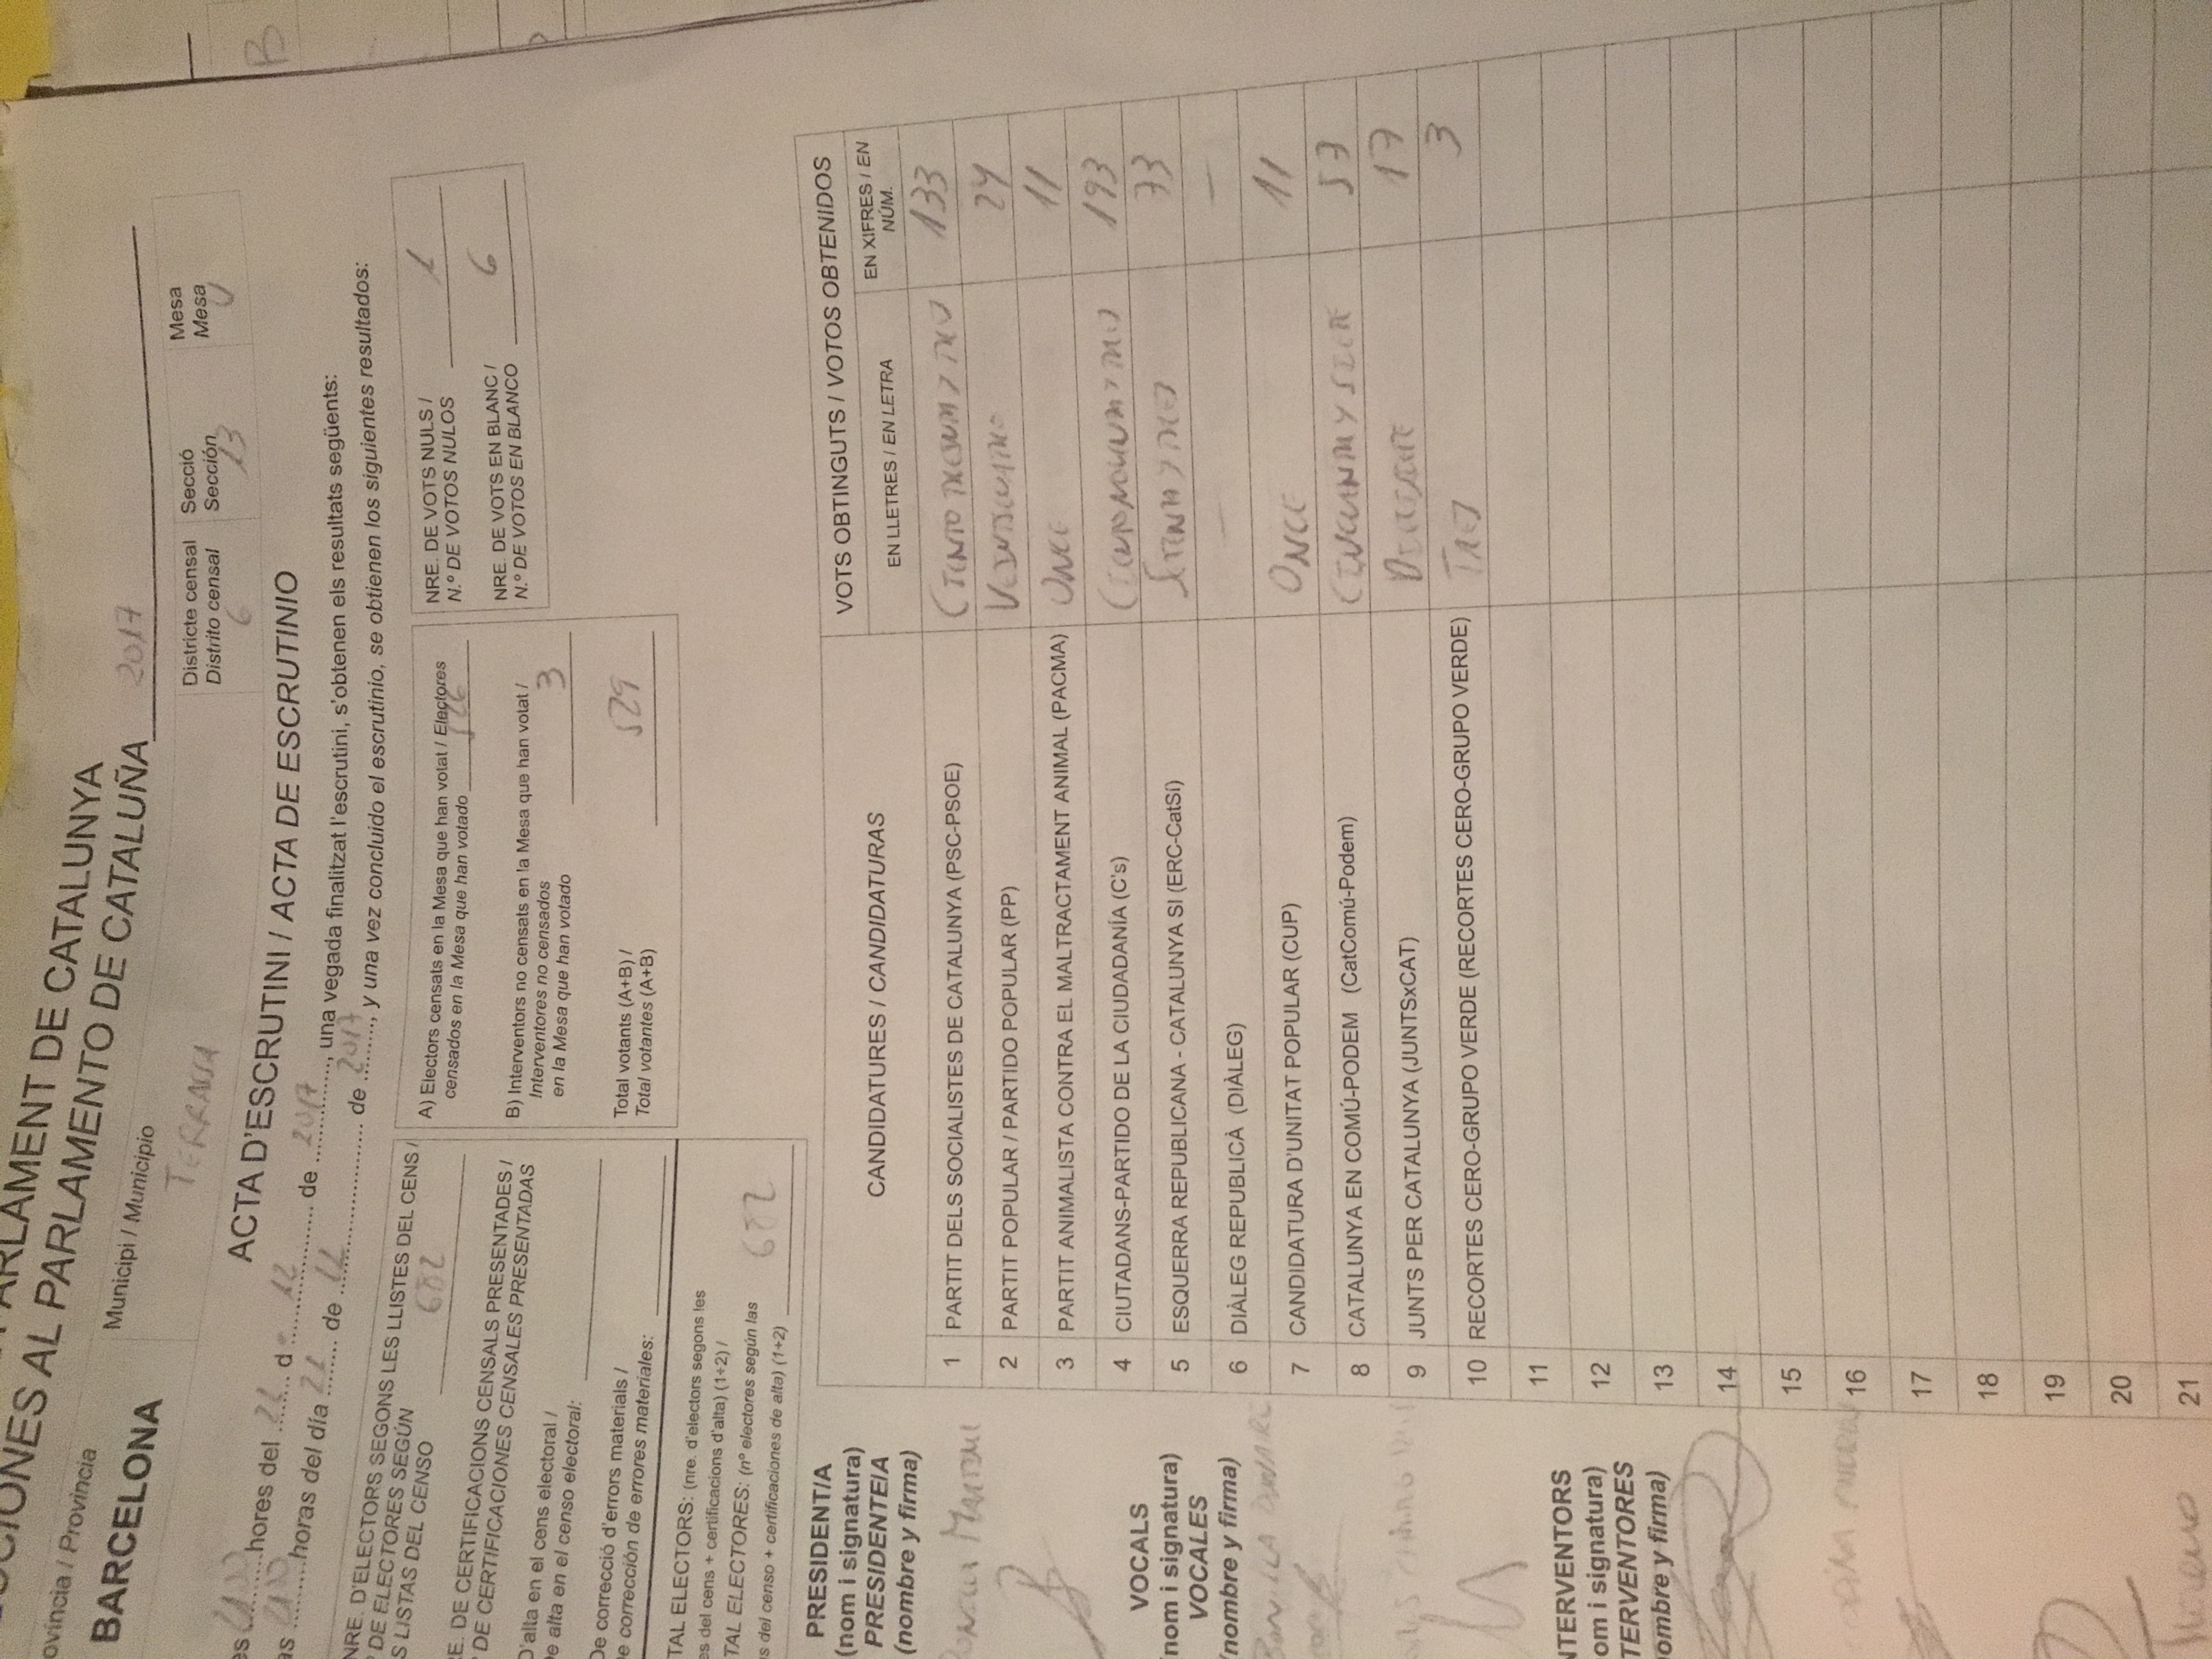 ARLAMENT DE CATALUNYA
CIONES AL PARLAMENTO DE CATALUÑA 2017
ovincia / Provincia
BARCELONA
Municipi / Municipio
TERRASSA
Districte censal
Distrito censal
6
Secció
Sección
13
Mesa
Mesa
U
ACTA D'ESCRUTINI / ACTA DE ESCRUTINIO
hores del d 12 de 2017, una vegada finalitzat l'escrutini, s'obtenen els resultats següents:
horas del día de de 2017, y una vez concluido el escrutinio, se obtienen los siguientes resultados:
NRE. D'ELECTORS SEGONS LES LLISTES DEL CENS /
DE ELECTORES SEGÚN
S LISTAS DEL CENSO 682
RE. DE CERTIFICACIONS CENSALS PRESENTADES /
DE CERTIFICACIONES CENSALES PRESENTADAS
D'alta en el cens electoral /
De alta en el censo electoral:
De correcció d'errors materials /
De corrección de errores materiales:
TAL ELECTORS: (nre. d'electors segons les
es del cens + certificacions d'alta) (1+2) /
TAL ELECTORES: (nº electores según las
s del censo + certificaciones de alta) (1+2) 682
A) Electors censats en la Mesa que han votat / Electores
censados en la Mesa que han votado 526
B) Interventors no censats en la Mesa que han votat /
Interventores no censados
en la Mesa que han votado 3
Total votants (A+B) /
Total votantes (A+B) 529
NRE. DE VOTS NULS /
N.º DE VOTOS NULOS 1
NRE. DE VOTS EN BLANC /
N.º DE VOTOS EN BLANCO 6
CANDIDATURES / CANDIDATURAS
VOTS OBTINGUTS / VOTOS OBTENIDOS
EN LLETRES / EN LETRA
EN XIFRES / EN NÚM.
1 PARTIT DELS SOCIALISTES DE CATALUNYA (PSC-PSOE) CIENTO TREINTA Y TRES 133
2 PARTIT POPULAR / PARTIDO POPULAR (PP) VEINTICUATRO 24
3 PARTIT ANIMALISTA CONTRA EL MALTRACTAMENT ANIMAL (PACMA) ONCE 11
4 CIUTADANS-PARTIDO DE LA CIUDADANÍA (C's) CIENTO NOVENTA Y TRES 193
5 ESQUERRA REPUBLICANA - CATALUNYA SI (ERC-CatSí) SETENTA Y TRES 73
6 DIÀLEG REPUBLICÀ (DIÀLEG) — —
7 CANDIDATURA D'UNITAT POPULAR (CUP) ONCE 11
8 CATALUNYA EN COMÚ-PODEM (CatComú-Podem) CINCUENTA Y SIETE 57
9 JUNTS PER CATALUNYA (JUNTSxCAT) DIECISIETE 17
10 RECORTES CERO-GRUPO VERDE (RECORTES CERO-GRUPO VERDE) TRES 3
11
12
13
14
15
16
17
18
19
20
21
PRESIDENT/A
(nom i signatura)
PRESIDENTE/A
(nombre y firma)
VOCALS
nom i signatura)
VOCALES
nombre y firma)
NTERVENTORS
om i signatura)
TERVENTORES
ombre y firma)